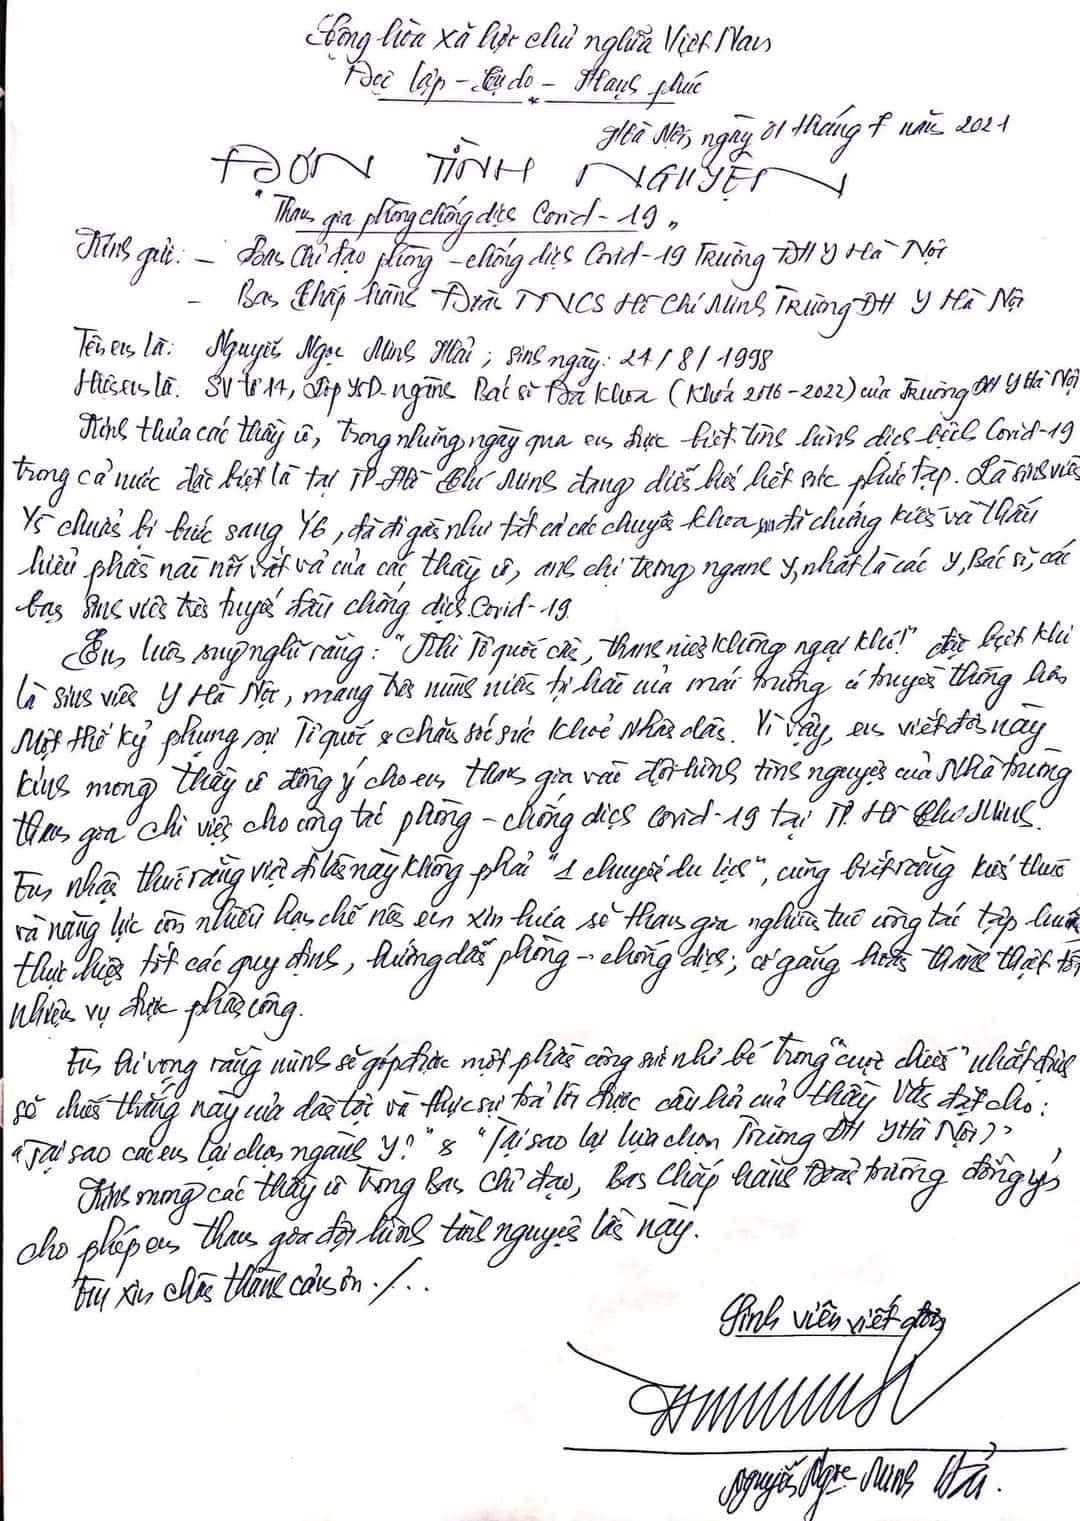 Cộng hòa xã hội chủ nghĩa Việt Nam
Độc lập - Tự do - Hạnh phúc
Hà Nội, ngày 01 tháng 7 năm 2021
ĐƠN TÌNH NGUYỆN
"Tham gia phòng chống dịch Covid-19"
Kính gửi: - Ban Chỉ đạo phòng - chống dịch Covid-19 Trường ĐH Y Hà Nội
- Ban Chấp hành Đoàn TNCS Hồ Chí Minh Trường ĐH Y Hà Nội
Tên em là: Nguyễn Ngọc Minh Hải; sinh ngày: 24/8/1998
Hiện em là: SV tổ 14, lớp Y5D - ngành Bác sĩ Đa khoa (Khoá 2016-2022) của Trường ĐH Y Hà Nội
Kính thưa các thầy cô, trong những ngày qua em được biết tình hình dịch bệnh Covid-19
trong cả nước đặc biệt là tại TP. Hồ Chí Minh đang diễn biến hết sức phức tạp. Là sinh viên
Y5 chuẩn bị bước sang Y6, đã đi gần như tất cả các chuyên khoa, em đã chứng kiến và thấu
hiểu phần nào nỗi vất vả của các thầy cô, anh chị trong ngành Y, nhất là các Y, Bác sĩ, các
bạn sinh viên trên tuyến đầu chống dịch Covid-19.
Em luôn suy nghĩ rằng: "Khi Tổ quốc cần, thanh niên không ngại khó!" đặc biệt khi
là sinh viên Y Hà Nội, mang trên mình niềm tự hào của mái trường có truyền thống hơn
Một thế kỷ phụng sự Tổ quốc & chăm sóc sức khoẻ Nhân dân. Vì vậy, em viết đơn này
kính mong thầy cô đồng ý cho em tham gia vào đội hình tình nguyện của Nhà trường
tham gia chi viện cho công tác phòng - chống dịch Covid-19 tại TP. Hồ Chí Minh.
Em nhận thức rằng việc đi lần này không phải "1 chuyến du lịch", cũng biết rằng kiến thức
và năng lực còn nhiều hạn chế nên em xin hứa sẽ tham gia nghiêm túc công tác tập huấn
thực hiện tốt các quy định, hướng dẫn phòng - chống dịch; cố gắng hoàn thành thật tốt
nhiệm vụ được phân công.
Em hi vọng rằng mình sẽ góp được một phần công sức nhỏ bé trong "cuộc chiến" nhất định
sẽ chiến thắng này của dân tộc và thực sự trả lời được câu hỏi của thầy Văn đặt cho:
"Tại sao các em lại chọn ngành Y?" & "Tại sao lại lựa chọn Trường ĐH Y Hà Nội?"
Kính mong các thầy cô trong Ban Chỉ đạo, Ban Chấp hành Đoàn trường đồng ý
cho phép em tham gia đội hình tình nguyện lần này.
Em xin chân thành cảm ơn ./...
Sinh viên viết đơn
Nguyễn Ngọc Minh Hải.